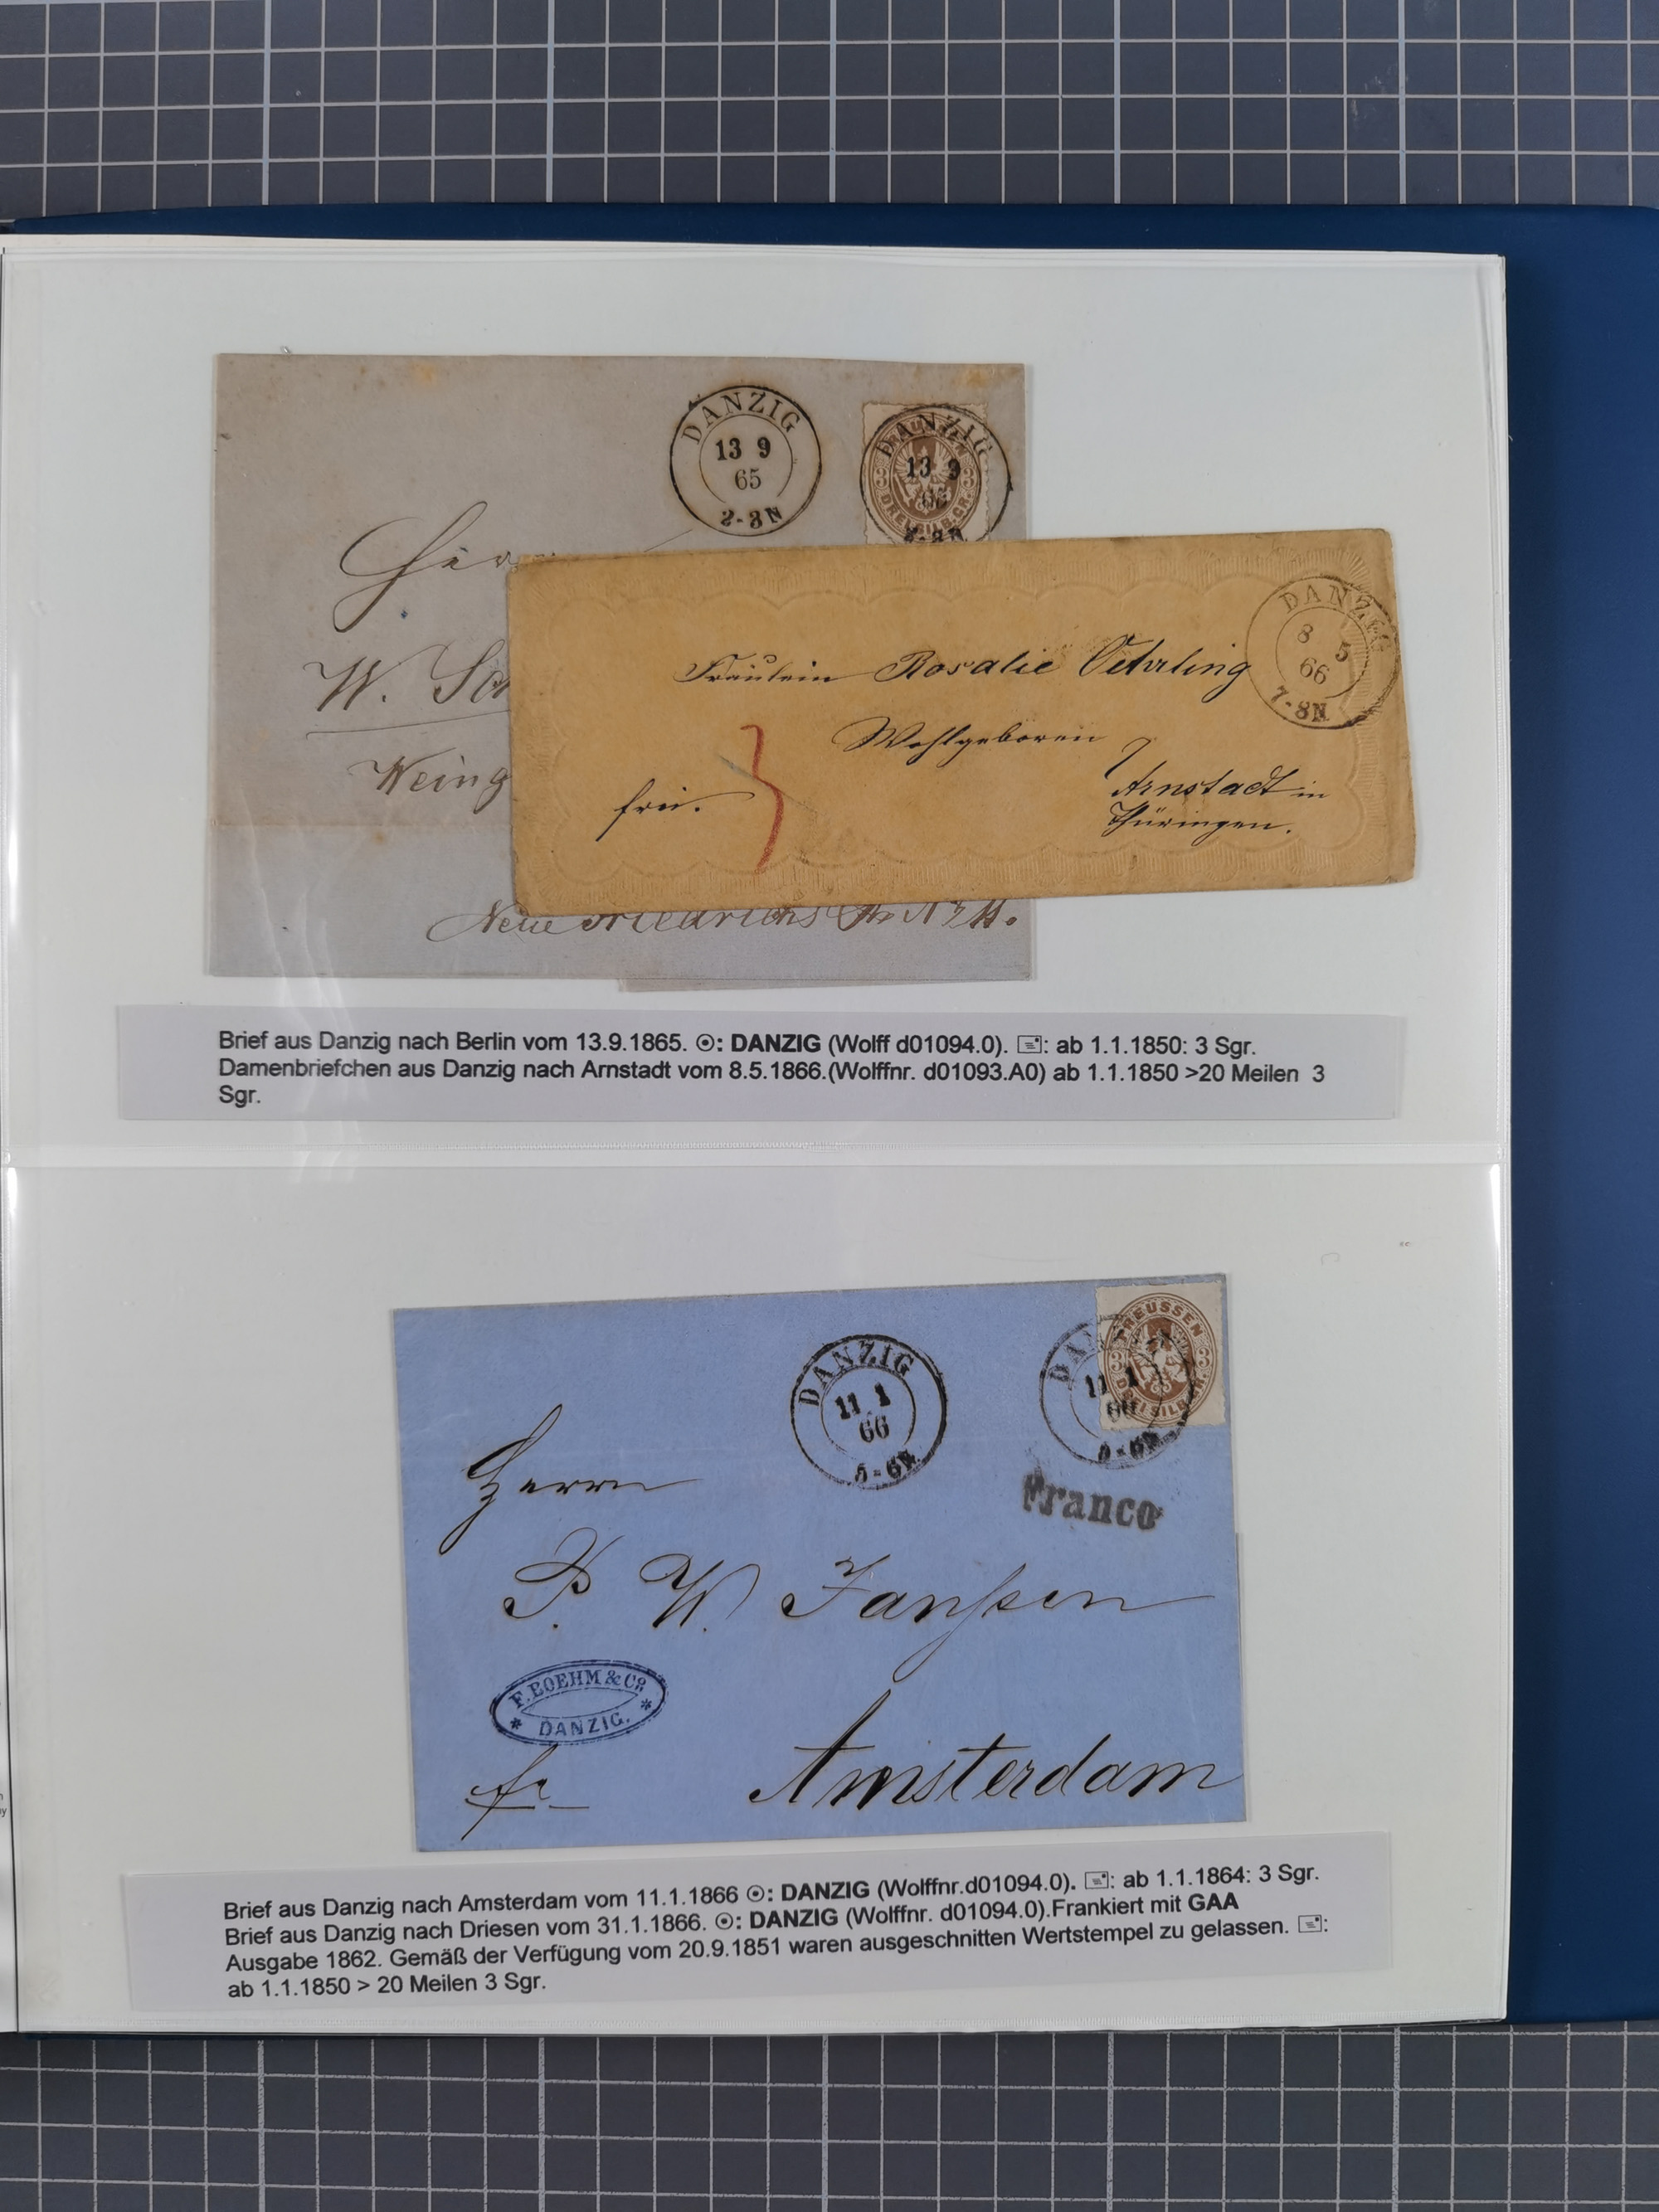 DANZIG
13 9
65
2-3N
DANZIG
13 9
65
DREI SILB.GR.
3 3
Herrn
W.
Neue Friedrichs Str. №
DANZIG
8 5
66
7-8N
Fräulein Rosalie Oehrling
Wohlgeboren
frei.
3
Arnstadt in
Thüringen.
Brief aus Danzig nach Berlin vom 13.9.1865. ⦿: DANZIG (Wolff d01094.0). 🖃: ab 1.1.1850: 3 Sgr.
Damenbriefchen aus Danzig nach Arnstadt vom 8.5.1866.(Wolffnr. d01093.A0) ab 1.1.1850 >20 Meilen 3
Sgr.
DANZIG
11 1
66
5-6N
PREUSSEN
3 3
DREI SILB.GR.
11 1
66
5-6N
Franco
Herrn
P. W. Janssen
F. BOEHM & Co
* DANZIG. *
fr
Amsterdam
Brief aus Danzig nach Amsterdam vom 11.1.1866 ⦿: DANZIG (Wolffnr.d01094.0). 🖃: ab 1.1.1864: 3 Sgr.
Brief aus Danzig nach Driesen vom 31.1.1866. ⦿: DANZIG (Wolffnr. d01094.0).Frankiert mit GAA
Ausgabe 1862. Gemäß der Verfügung vom 20.9.1851 waren ausgeschnitten Wertstempel zu gelassen. 🖃:
ab 1.1.1850 > 20 Meilen 3 Sgr.